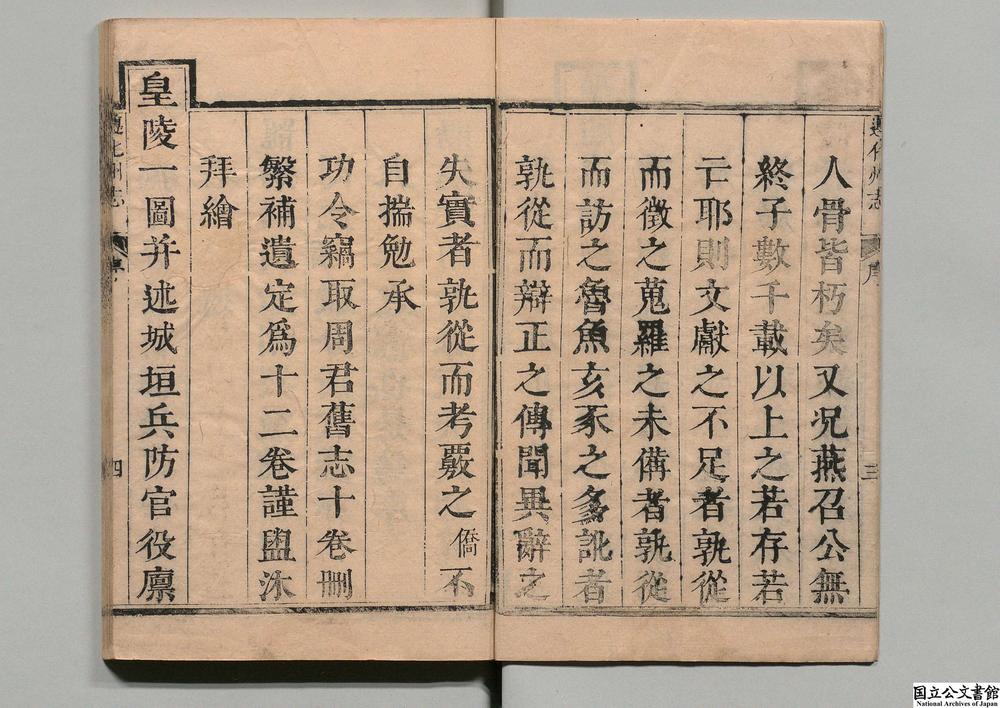 遵化州志
序
三
人骨皆朽矣又況燕召公無
終子數千載以上之若存若
亡耶則文獻之不足者孰從
而徵之蒐羅之未備者孰從
而訪之魯魚亥豕之多訛者
孰從而辯正之傳聞異辭之
失實者孰從而考覈之僑不
自揣勉承
功令竊取周君舊志十卷刪
繁補遺定為十二卷謹盥沐
拜繪
皇陵一圖并述城垣兵防官役廪
遵化州志
序
四
国立公文書館
National Archives of Japan